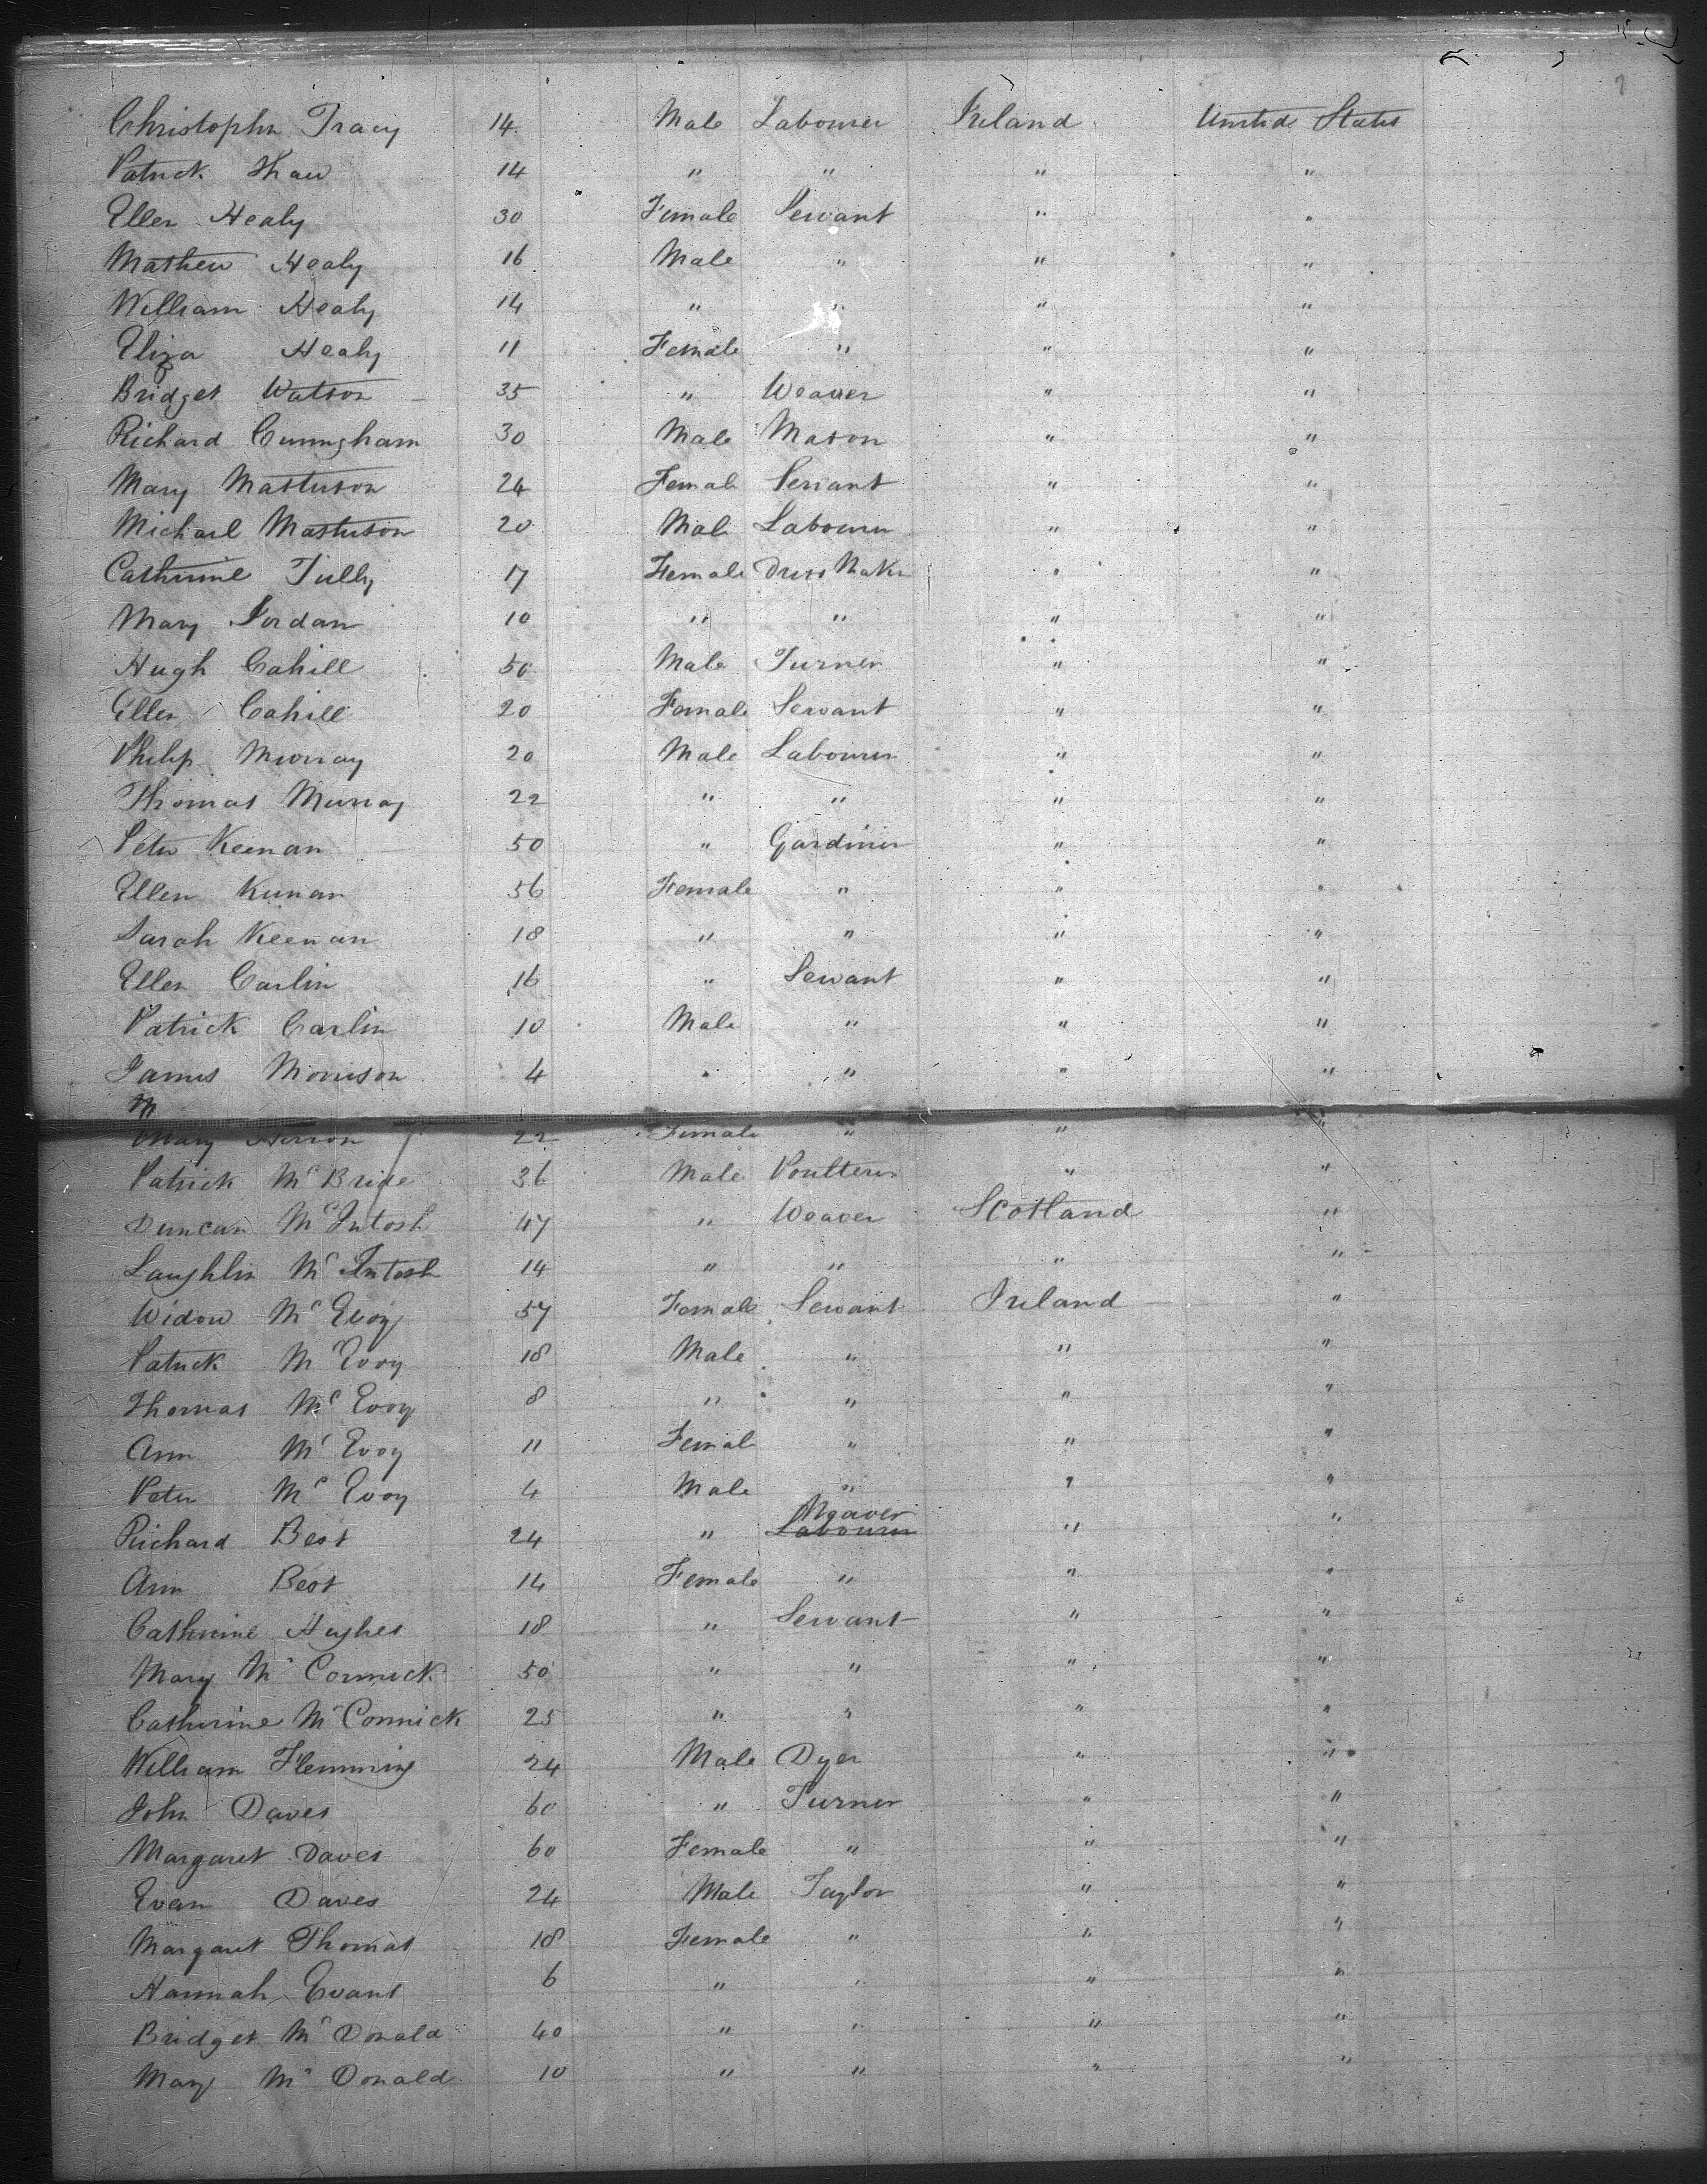 Christopher Tracy 14 Male Labourer Ireland United States
Patrick Thaw 14 " " " "
Ellen Healy 30 Female Servant " "
Mathew Healy 16 Male " " "
William Healy 14 " " " "
Eliza Healy 11 Female " " "
Bridget Watson 35 " Weaver " "
Richard Cuningham 30 Male Mason " "
Mary Masterson 24 Female Servant " "
Michael Masterson 20 Male Labourer " "
Catherine Tully 17 Female Dress Maker " "
Mary Jordan 10 " " " "
Hugh Cahill 50 Male Turner " "
Ellen Cahill 20 Female Servant " "
Philip Murray 20 Male Labourer " "
Thomas Murray 22 " " " "
Peter Keenan 50 " Gardiner " "
Ellen Keenan 56 Female " " "
Sarah Keenan 18 " " " "
Ellen Carlin 16 " Servant " "
Patrick Carlin 10 Male " " "
James Morrison 4 " " " "
M
Mary Herron 22 Female " " "
Patrick McBride 36 Male Poulterer " "
Duncan McIntosh 47 " Weaver Scotland "
Laughlin McIntosh 14 " " " "
Widow McEvoy 57 Female Servant Ireland "
Patrick McEvoy 18 Male " " "
Thomas McEvoy 8 " " " "
Ann McEvoy 11 Female " " "
Peter McEvoy 4 Male " " "
Weaver
Richard Best 24 " Labourer " "
Ann Best 14 Female " " "
Catherine Hughes 18 " Servant " "
Mary McCormick 50 " " " "
Catherine McCormick 25 " " " "
William Flemming 24 Male Dyer " "
John Daves 60 " Turner " "
Margaret Daves 60 Female " " "
Evan Daves 24 Male Taylor " "
Margaret Thomas 18 Female " " "
Hannah Evans 6 " " " "
Bridget McDonald 40 " " " "
Mary McDonald 10 " " " "